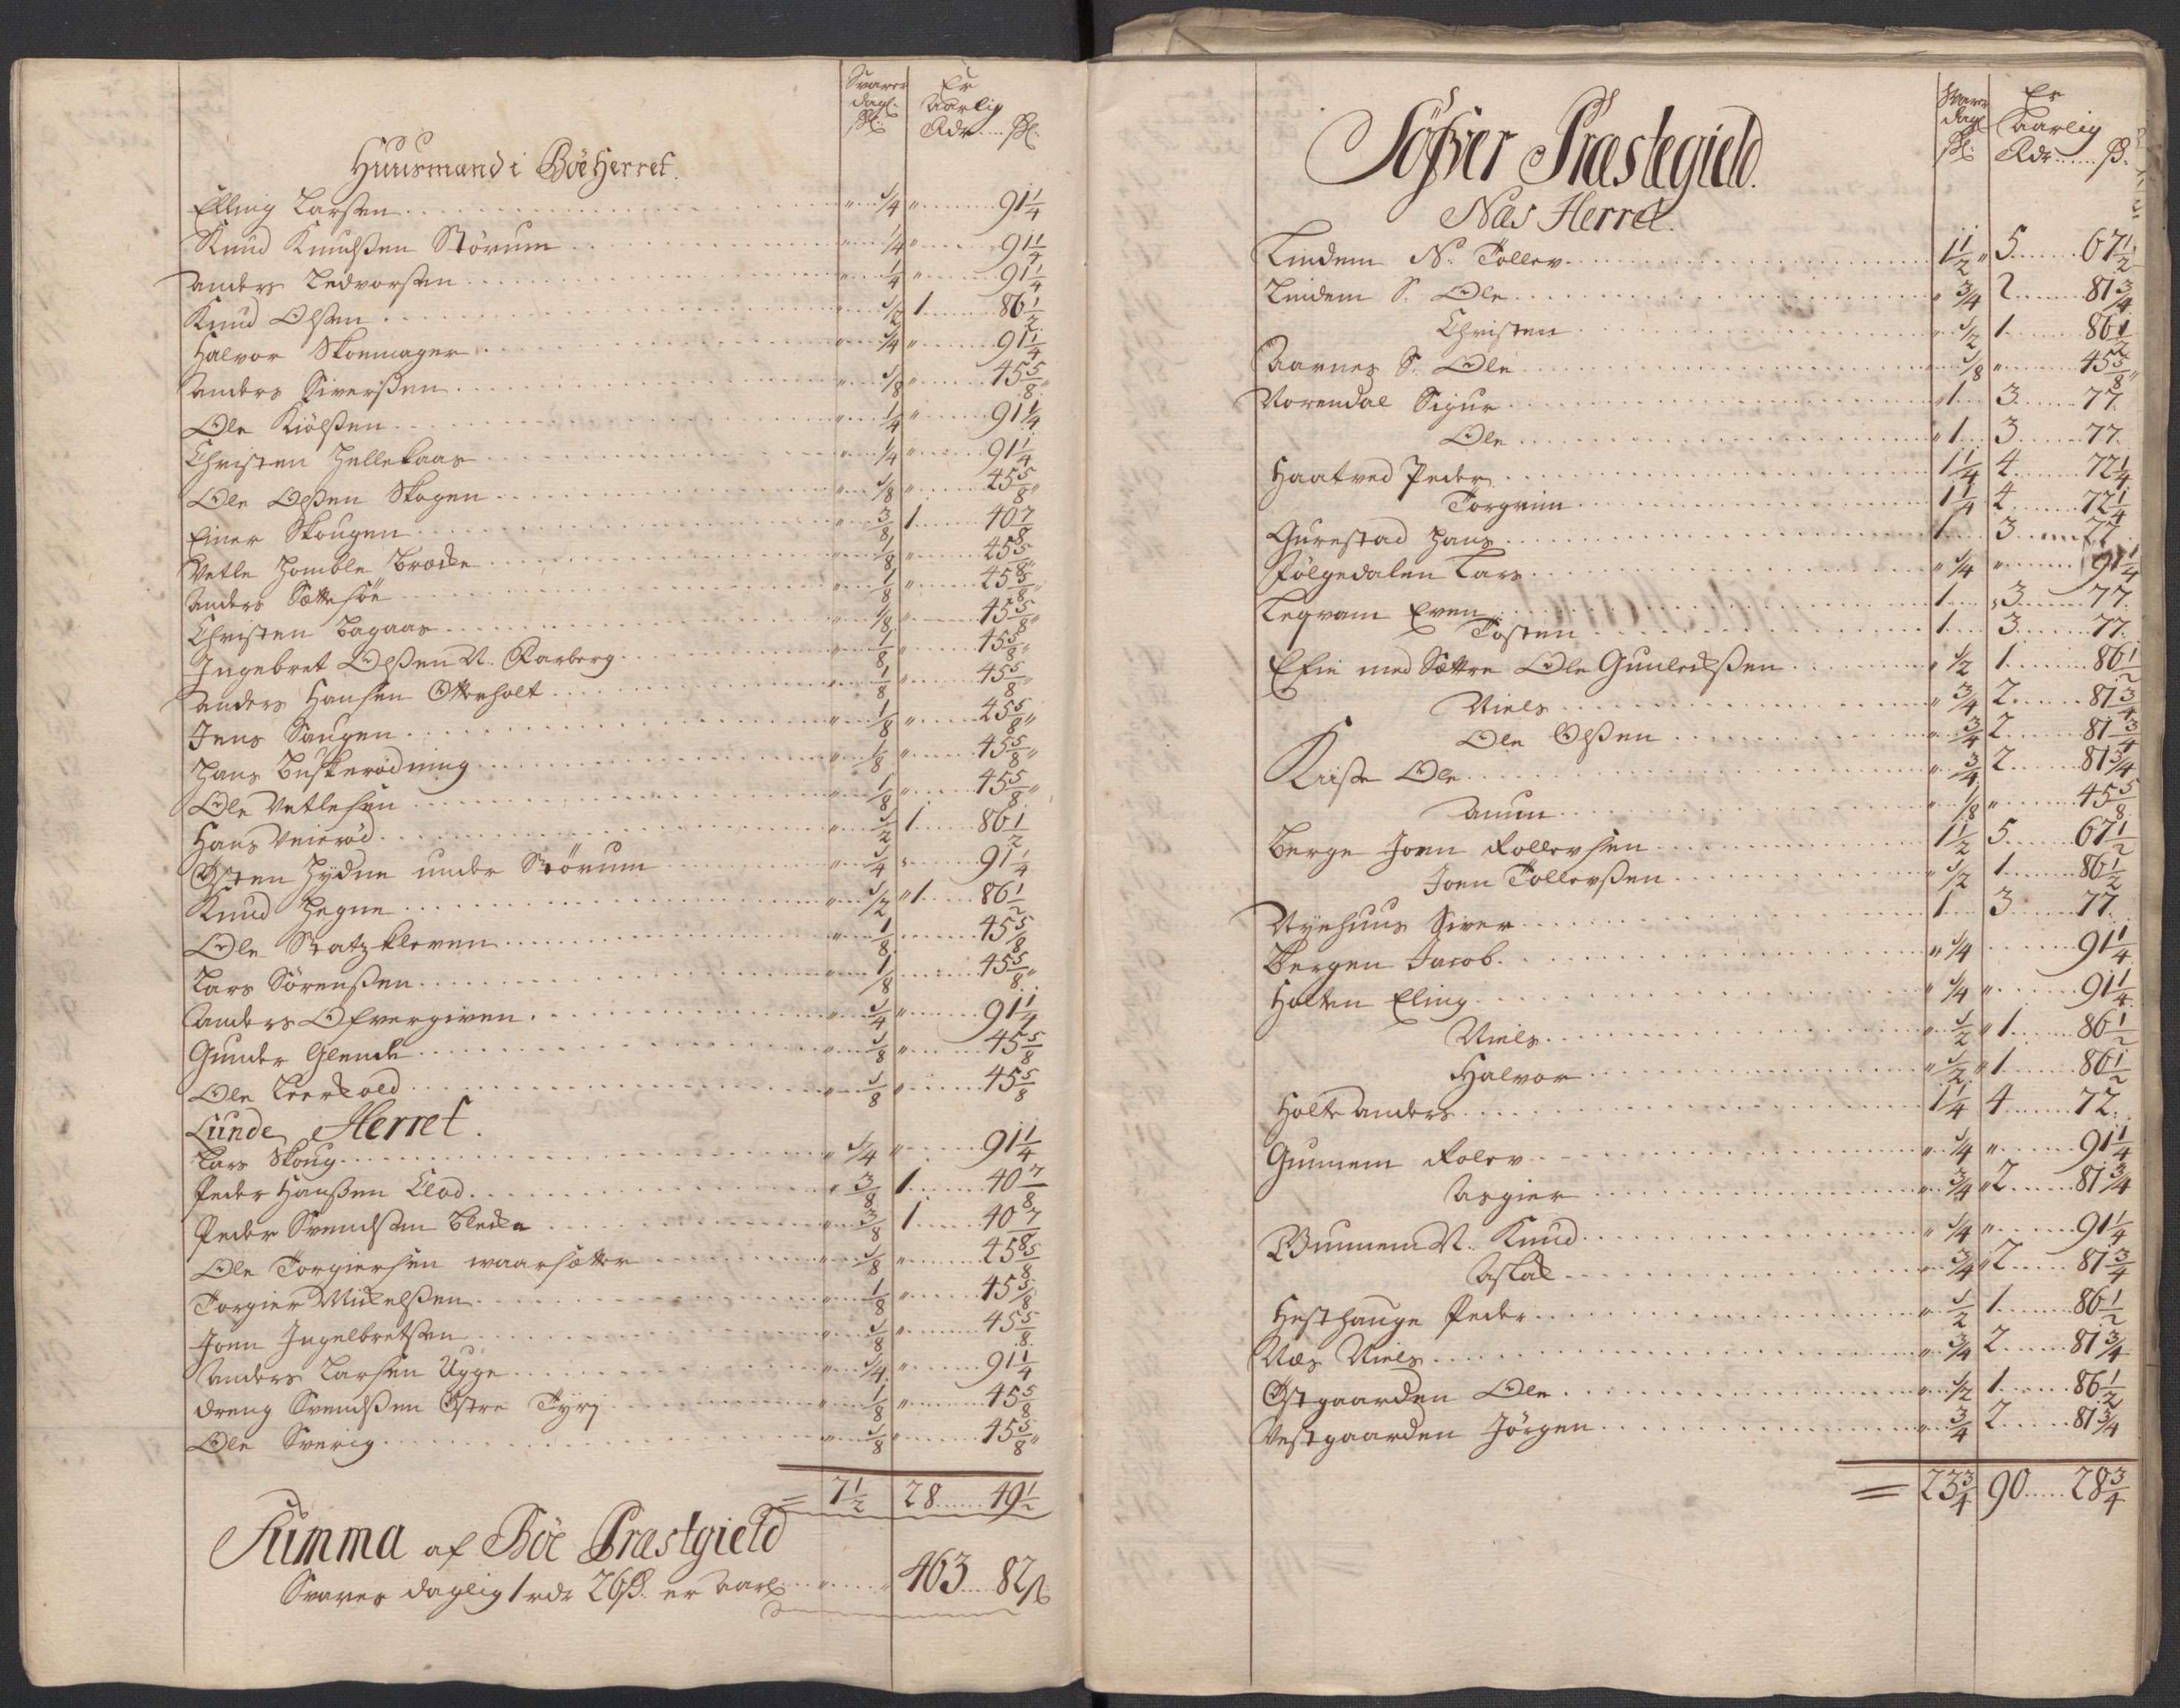 Svarer dagl: ßl:
Er Aarlig Rdr ..... ßl:
Huusmænd i Böe Herret.
Elling Larsen ..... " 1/4 " ..... 91 1/4
Knud Knudsßen Störum ..... " 1/4 " ..... 91 1/4
Anders Ledvorsen ..... " 1/4 " ..... 91 1/4
Knud Olsen ..... " 1/2 1 ..... 86 1/2
Halvor Skoemager ..... " 1/4 " ..... 91 1/4
Anders Siverßen ..... " 1/8 " ..... 45 5/8
Ole Kiölßen ..... " 1/4 " ..... 91 1/4
Christen Hellekaas ..... " 1/4 " ..... 91 1/4
Ole Olßen Skogen ..... " 1/8 " ..... 45 5/8
Einer Skougen ..... " 3/8 1 ..... 40 7/8
Vetle Homble Brocke ..... " 1/8 " ..... 45 5/8
Anders Sættesöe ..... " 1/8 " ..... 45 5/8
Christen Bagaas ..... " 1/8 " ..... 45 5/8
Ingebret Olßen N. Rarberg ..... " 1/8 " ..... 45 5/8
Anders Hansen Otterholt ..... " 1/8 " ..... 45 5/8
Jens Saugen ..... " 1/8 " ..... 45 5/8
Hans Buskerødning ..... " 1/8 " ..... 45 5/8
Ole Vetlesen ..... " 1/8 " ..... 45 5/8
Hans Veieröd ..... " 1/2 1 ..... 86 1/2
Østen Hydne under Störum ..... " 1/4 " ..... 91 1/4
Knud Hegne ..... " 1/2 " 1 ..... 86 1/2
Ole Statzkleven ..... " 1/8 ..... 45 5/8
Lars Sörenßen ..... " 1/8 ..... 45 5/8
Anders Ofvergiven ..... " 1/4 " ..... 91 1/4
Gunder Glende ..... " 1/8 " ..... 45 5/8
Ole Leerkold ..... " 1/8 " ..... 45 5/8
Lunde Herret.
Lars Skoug ..... " 1/4 " ..... 91 1/4
Peder Hanßen Clod ..... " 3/8 1 ..... 40 7/8
Peder Svendsen Blecka ..... " 3/8 1 ..... 40 7/8
Ole Torgiersen waarsætter ..... " 1/8 " ..... 45 5/8
Torgier Mickelßen ..... " 1/8 " ..... 45 5/8
Joen Ingelbretsen ..... " 1/8 " ..... 45 5/8
Anders Larsen Ugge ..... " 1/4 " ..... 91 1/4
Dreng Svendßen Östre Tyrj ..... " 1/8 " ..... 45 5/8
Ole Sverig ..... " 1/8 " ..... 45 5/8
= 7 1/2 28 ..... 49 1/2
Summa af Böe Præstgield
Svarer daglig 1 rdr 26 ß. er Aarl: ..... " 463 ..... 82 ß
Svarer dagl ßl:
Er Aarlig Rdr ..... ß.
Søfver Præstegield.
Næs Herret.
Lindem N. Tollev ..... 1 1/2 " 5 ..... 67 1/2
Lindem S. Ole ..... " 3/4 2 ..... 81 3/4
Christen ..... " 1/2 1 ..... 86 1/2
Aarnes S. Ole ..... 1/8 " ..... 45 5/8
Norendal Sigur ..... " 1 3 ..... 77.
Ole ..... " 1 3 ..... 77.
Haatved Peder ..... 1 1/4 4 ..... 72 1/4
Torgrim ..... 1 1/4 4 ..... 72 1/4
Gurestad Hans ..... 1 3 ..... 77
Følgedalen Lars ..... " 1/4 " ..... 91 1/4
Tegvam Even ..... 1 3 ..... 77.
Tosten ..... 1 3 ..... 77.
Efie med Sættre Ole Gunlecksßen ..... " 1/2 1 ..... 86 1/2
Niels ..... " 3/4 2 ..... 81 3/4
Ole Olßen ..... " 3/4 2 ..... 81 3/4
Kiise Ole ..... " 3/4 2 ..... 81 3/4
Amun ..... " 1/8 " ..... 45 5/8
Berge Joen Rollevsen ..... 1 1/2 5 ..... 67 1/2
Joen Tollevßen ..... " 1/2 1 ..... 86 1/2
Nyehuus Siver ..... 1 3 ..... 77.
Bergen Jacob ..... " 1/4 ..... 91 1/4
Holten Eling ..... " 1/4 " ..... 91 1/4
Niels ..... " 1/2 " 1 ..... 86 1/2
Halvor ..... " 1/2 " 1 ..... 86 1/2
Holte Anders ..... 1 1/4 4 ..... 72.
Gunnem Rolev ..... " 1/4 " ..... 91 1/4
Asgier ..... " 3/4 " 2 ..... 81 3/4
Wunnem N. Knud ..... " 1/4 " ..... 91 1/4
Aslak ..... " 3/4 2 ..... 81 3/4
Hesthauge Peder ..... " 1/2 1 ..... 86 1/2
Næs Niels ..... " 3/4 2 ..... 81 3/4
Østgaarden Ole ..... " 1/2 1 ..... 86 1/2
Vestgaarden Jörgen ..... " 3/4 2 ..... 81 3/4
= 23 3/4 90 ..... 28 3/4